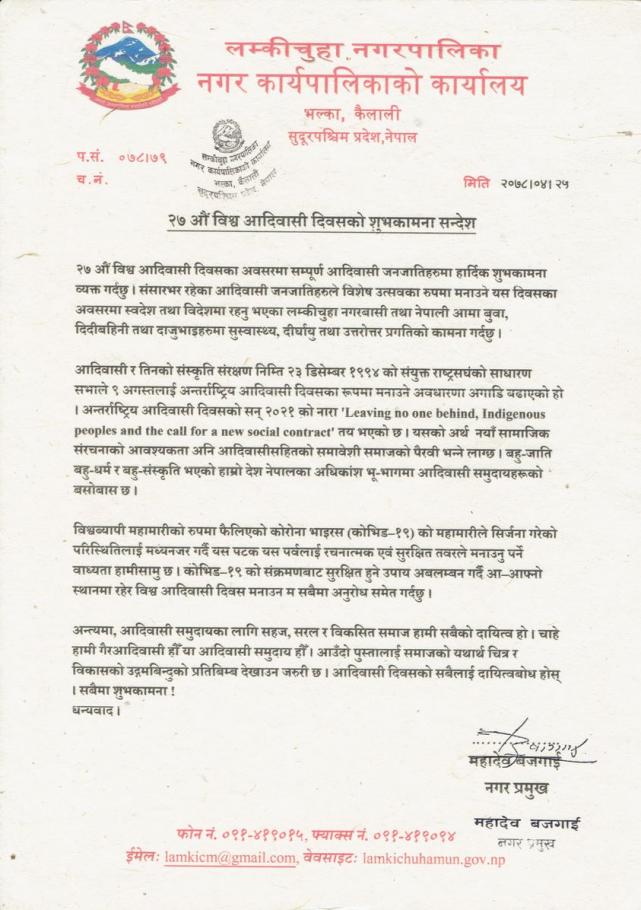 लम्कीचुहा नगरपालिका
नगर कार्यपालिकाको कार्यालय
भल्का, कैलाली
सुदूरपश्चिम प्रदेश,नेपाल
प.सं. ०७८।७९
च.नं.
लम्कीचुहा नगरपालिका
नगर कार्यपालिकाको कार्यालय
भल्का, कैलाली
सुदूरपश्चिम प्रदेश, नेपाल
मिति २०७८।०४।२५
२७ औं विश्व आदिवासी दिवसको शुभकामना सन्देश
२७ औं विश्व आदिवासी दिवसका अवसरमा सम्पूर्ण आदिवासी जनजातिहरुमा हार्दिक शुभकामना
व्यक्त गर्दछु । संसारभर रहेका आदिवासी जनजातिहरुले विशेष उत्सवका रुपमा मनाउने यस दिवसका
अवसरमा स्वदेश तथा विदेशमा रहनु भएका लम्कीचुहा नगरवासी तथा नेपाली आमा बुवा,
दिदीबहिनी तथा दाजुभाइहरुमा सुस्वास्थ्य, दीर्घायु तथा उत्तरोत्तर प्रगतिको कामना गर्दछु ।
आदिवासी र तिनको संस्कृति संरक्षण निम्ति २३ डिसेम्बर १९९४ को संयुक्त राष्ट्रसघंको साधारण
सभाले ९ अगस्तलाई अन्तर्राष्ट्रिय आदिवासी दिवसका रूपमा मनाउने अवधारणा अगाडि बढाएको हो
। अन्तर्राष्ट्रिय आदिवासी दिवसको सन् २०२१ को नारा 'Leaving no one behind, Indigenous
peoples and the call for a new social contract' तय भएको छ । यसको अर्थ नयाँ सामाजिक
संरचनाको आवश्यकता अनि आदिवासीसहितको समावेशी समाजको पैरवी भन्ने लाग्छ । बहु-जाति
बहु-धर्म र बहु-संस्कृति भएको हाम्रो देश नेपालका अधिकांश भू-भागमा आदिवासी समुदायहरूको
बसोबास छ ।
विश्वव्यापी महामारीको रुपमा फैलिएको कोरोना भाइरस (कोभिड–१९) को महामारीले सिर्जना गरेको
परिस्थितिलाई मध्यनजर गर्दै यस पटक यस पर्वलाई रचनात्मक एवं सुरक्षित तवरले मनाउनु पर्ने
वाध्यता हामीसामु छ । कोभिड–१९ को संक्रमणबाट सुरक्षित हुने उपाय अबलम्बन गर्दै आ–आफ्नो
स्थानमा रहेर विश्व आदिवासी दिवस मनाउन म सबैमा अनुरोध समेत गर्दछु ।
अन्त्यमा, आदिवासी समुदायका लागि सहज, सरल र विकसित समाज हामी सबैको दायित्व हो । चाहे
हामी गैरआदिवासी हौँ या आदिवासी समुदाय हौँ । आउँदो पुस्तालाई समाजको यथार्थ चित्र र
विकासको उद्गमबिन्दुको प्रतिबिम्ब देखाउन जरुरी छ । आदिवासी दिवसको सबैलाई दायित्वबोध होस्
। सबैमा शुभकामना !
धन्यवाद ।
महादेव बजगाई
नगर प्रमुख
महादेव बजगाई
नगर प्रमुख
फोन नं. ०९१-४१९०१५, फ्याक्स नं. ०९१-४१९०१४
ईमेलः lamkicm@gmail.com, वेवसाइटः lamkichuhamun.gov.np